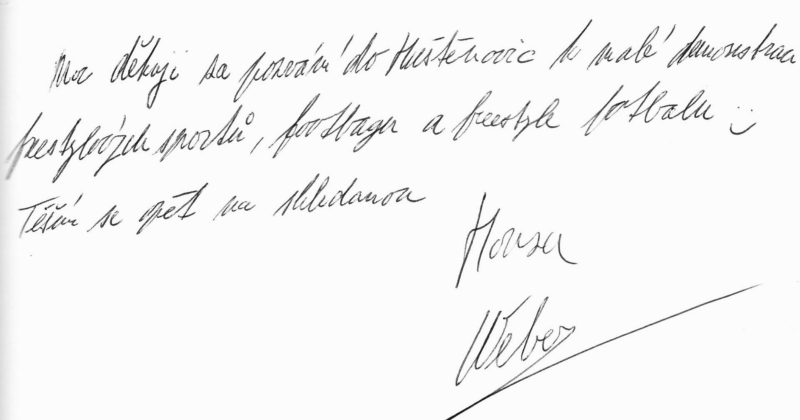 Moc děkuji za pozvání do Huštěnovic k malé demonstraci
freestylových sportů, footbagu a freestyle fotbalu :)
Těším se opět na shledanou
Honza
Weber